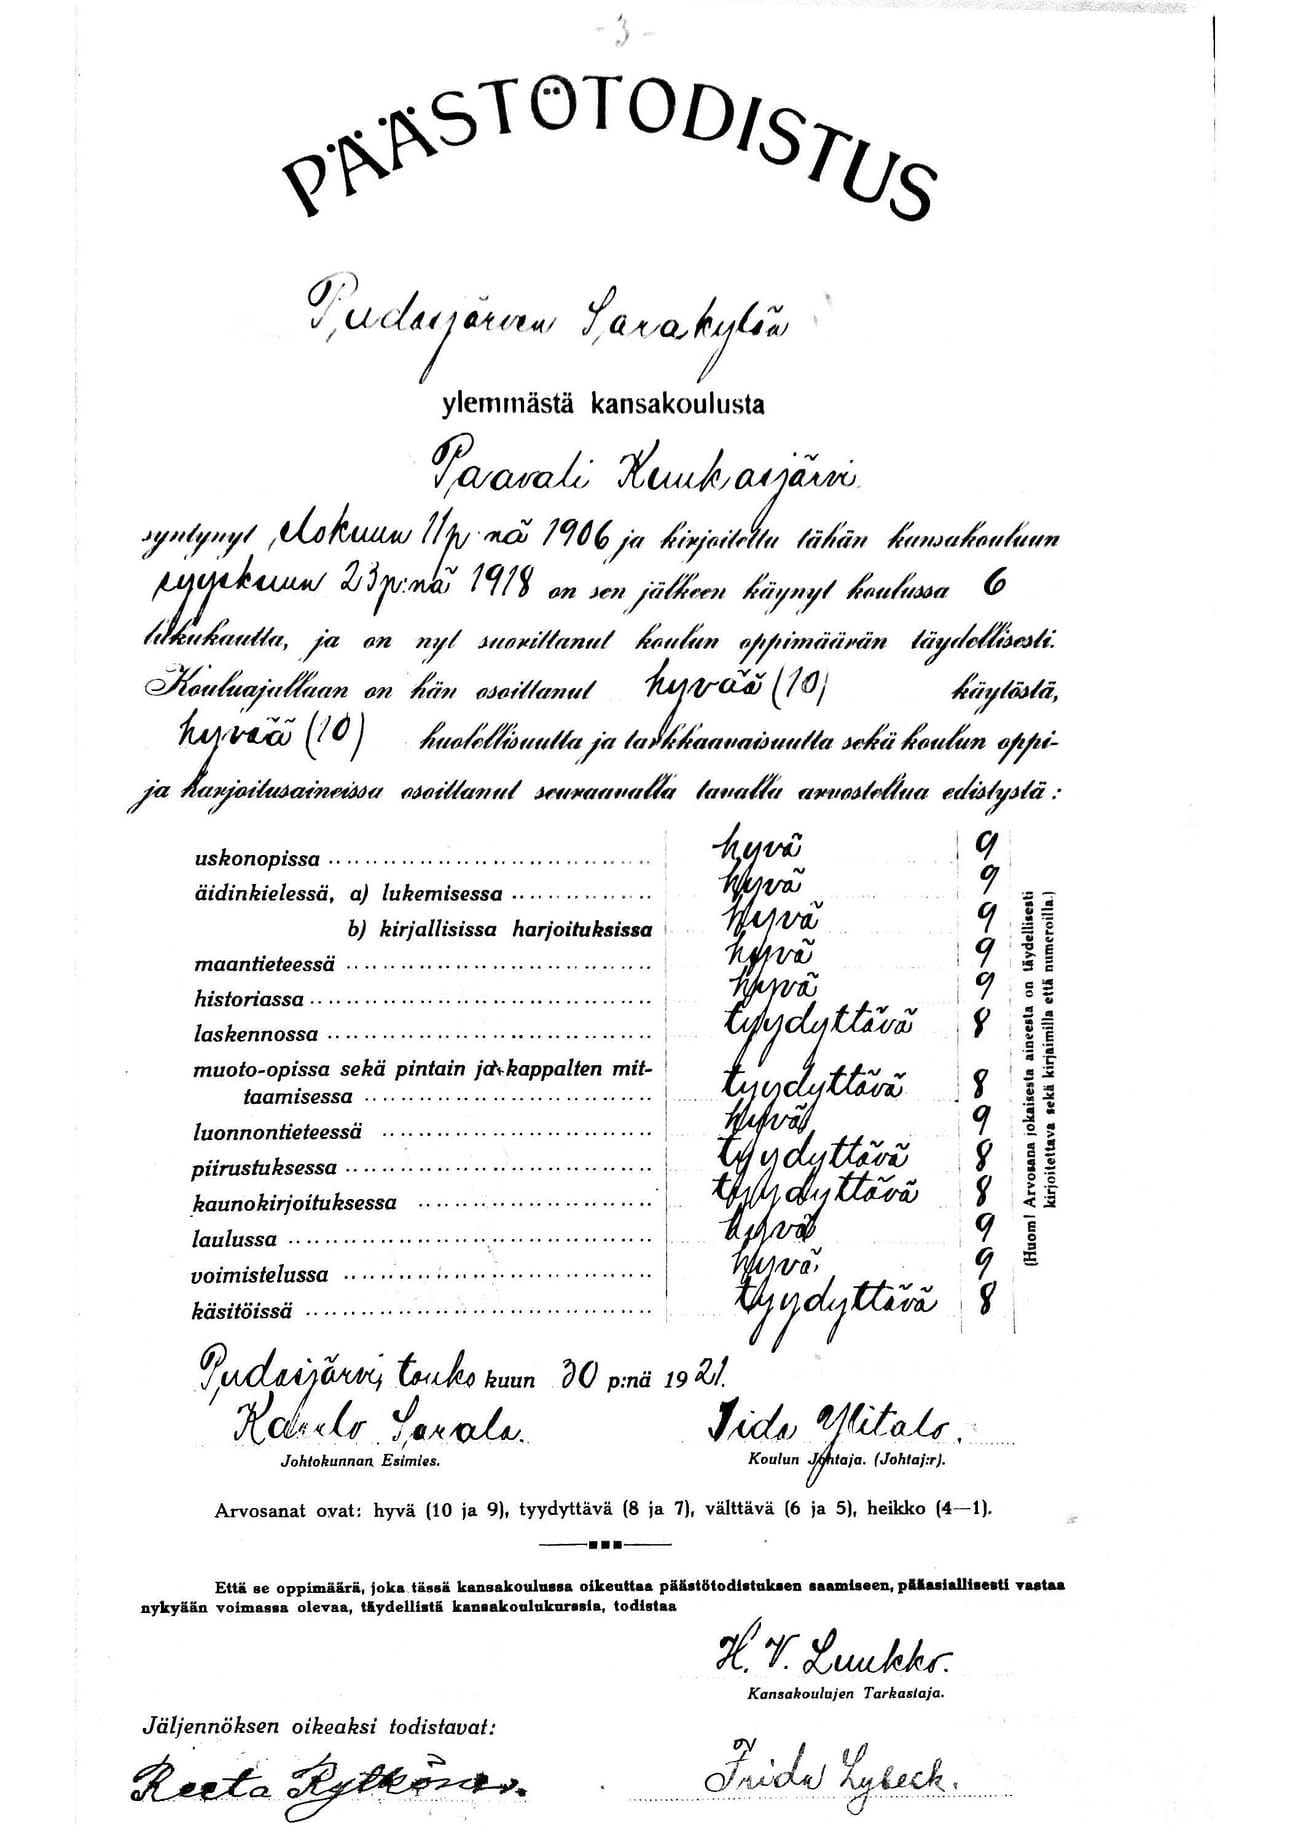 - 3 -
PÄÄSTÖTODISTUS
Pudasjärven Sarakylän
ylemmästä kansakoulusta
Paavali Kuukasjärvi
syntynyt elokuun 11 p:nä 1906 ja kirjoitettu tähän kansakouluun
syyskuun 23 p:nä 1918 on sen jälkeen käynyt koulussa 6
lukukautta, ja on nyt suorittanut koulun oppimäärän täydellisesti.
Kouluajallaan on hän osoittanut hyvää (10) käytöstä,
hyvää (10) huolellisuutta ja tarkkaavaisuutta sekä koulun oppi-
ja harjoitusaineissa osoittanut seuraavalla tavalla arvostellua edistystä:
uskonopissa hyvä 9
äidinkielessä, a) lukemisessa hyvä 9
b) kirjallisissa harjoituksissa hyvä 9
maantieteessä hyvä 9
historiassa hyvä 9
laskennossa tyydyttävä 8
muoto-opissa sekä pintain ja kappalten mit-
taamisessa tyydyttävä 8
luonnontieteessä hyvä 9
piirustuksessa tyydyttävä 8
kaunokirjoituksessa tyydyttävä 8
laulussa hyvä 9
voimistelussa hyvä 9
käsitöissä tyydyttävä 8
(Huom! Arvosana jokaisesta aineesta on täydellisesti
kirjoitettava sekä kirjaimilla että numeroilla.)
Pudasjärvi, touko kuun 30 p:nä 1921.
Kaarlo Sarala. Iida Ylitalo.
Johtokunnan Esimies. Koulun Johtaja. (Johtaj:r).
Arvosanat ovat: hyvä (10 ja 9), tyydyttävä (8 ja 7), välttävä (6 ja 5), heikko (4—1).
Että se oppimäärä, joka tässä kansakoulussa oikeuttaa päästötodistuksen saamiseen, pääasiallisesti vastaa
nykyään voimassa olevaa, täydellistä kansakoulukurssia, todistaa
H. V. Luukko.
Kansakoulujen Tarkastaja.
Jäljennöksen oikeaksi todistavat:
Reeta Rytkönen. Frida Lybeck.